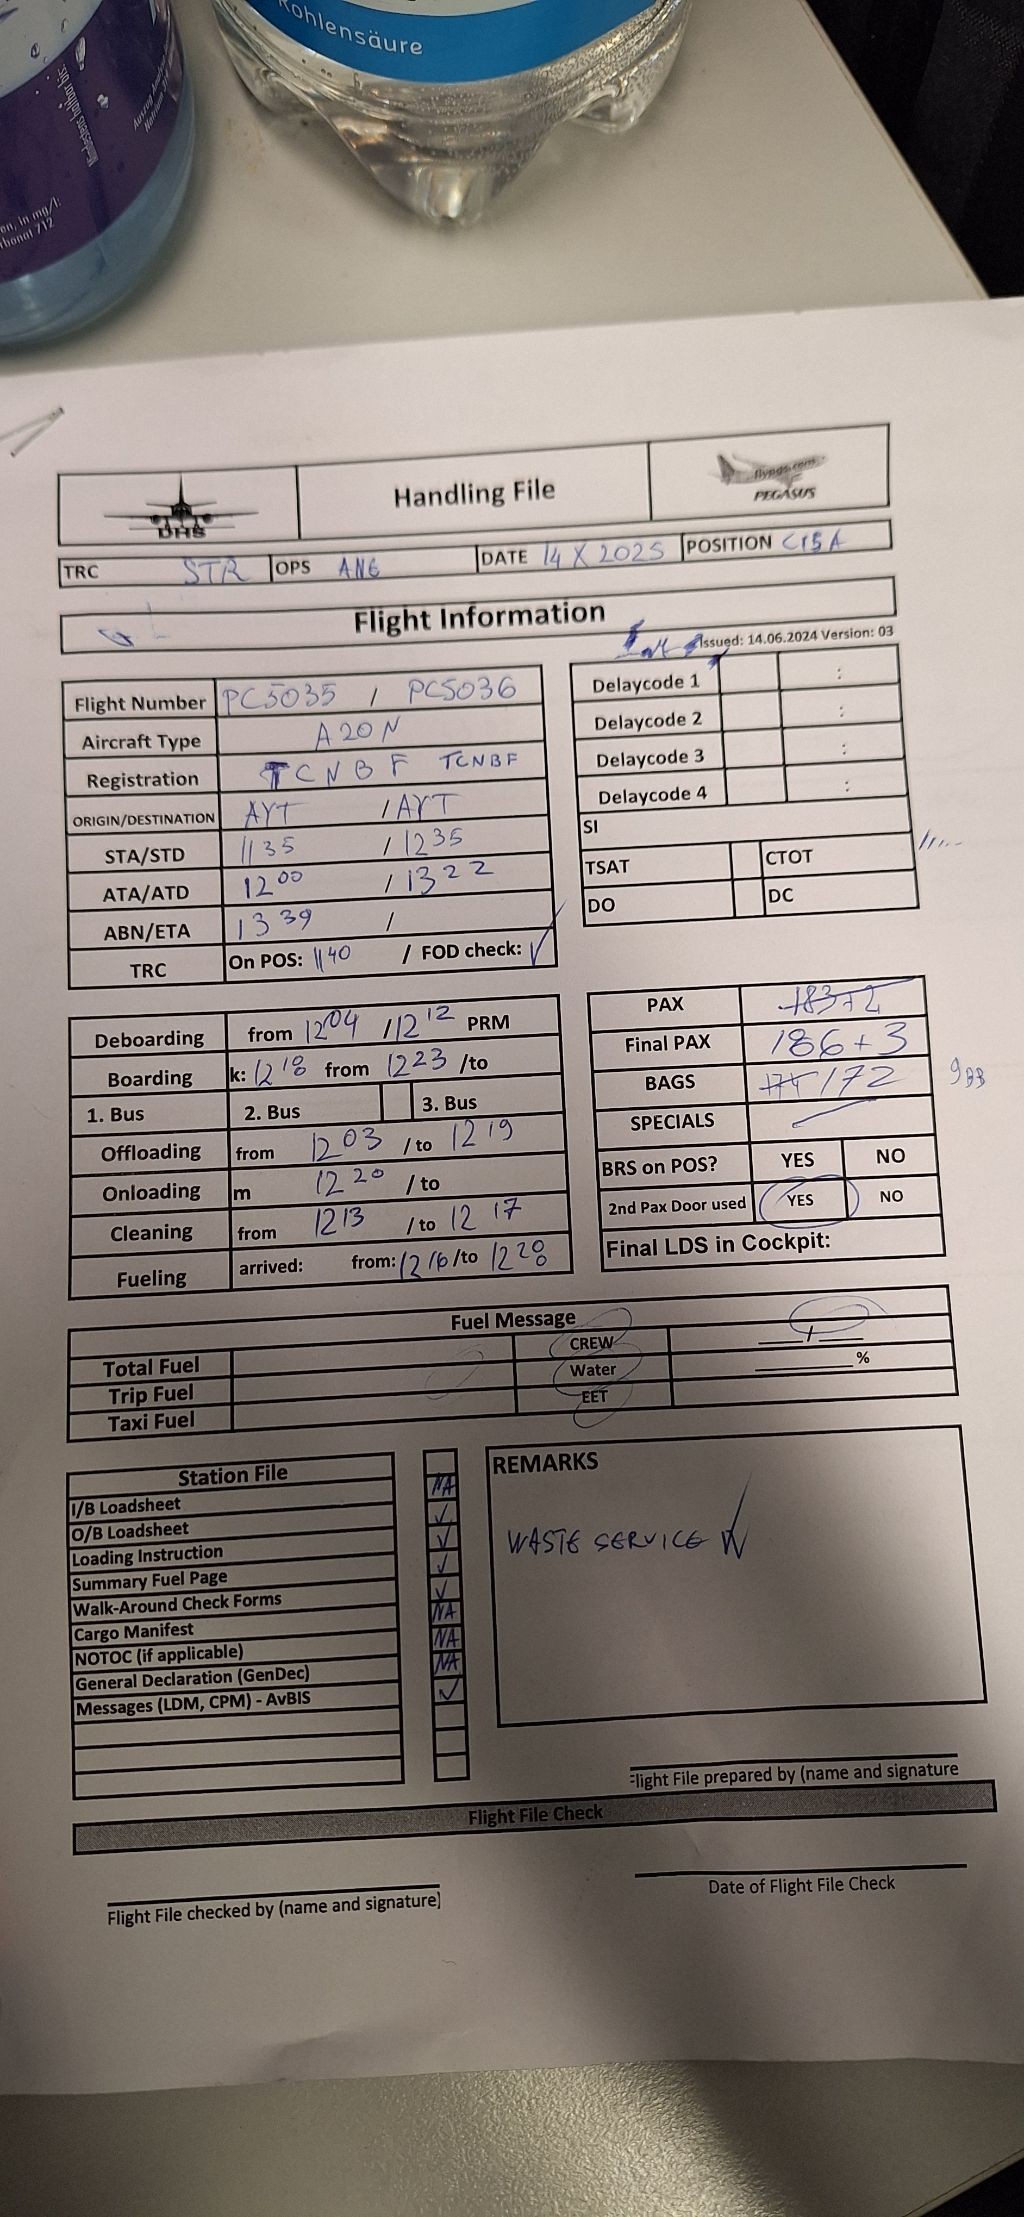 Kohlensäure
Mindestens haltbar bis:
en, in mg/l:
712
DHS
Handling File
flypgs.com
PEGASUS
TRC STR OPS ANG DATE 14 X 2025 POSITION C15A
Flight Information
Issued: 14.06.2024 Version: 03
Flight Number PC5035 / PC5036
Aircraft Type A20N
Registration TCNBF TCNBF
ORIGIN/DESTINATION AYT / AYT
STA/STD 1135 / 1235
ATA/ATD 1200 / 1322
ABN/ETA 1339 /
TRC On POS: 1140 / FOD check: ✓
Delaycode 1 :
Delaycode 2 :
Delaycode 3 :
Delaycode 4 :
SI
TSAT CTOT
DO DC
Deboarding from 1204 / 1212 PRM
Boarding k: 1218 from 1223 /to
1. Bus 2. Bus 3. Bus
Offloading from 1203 /to 1219
Onloading m 1220 /to
Cleaning from 1213 /to 1217
Fueling arrived: from: 1216 /to 1228
PAX 183+2
Final PAX 186+3
BAGS 174 172
SPECIALS
BRS on POS? YES NO
2nd Pax Door used YES NO
Final LDS in Cockpit:
Fuel Message
Total Fuel CREW ___/___
Trip Fuel Water ______%
Taxi Fuel EET
Station File
I/B Loadsheet NA
O/B Loadsheet ✓
Loading Instruction ✓
Summary Fuel Page ✓
Walk-Around Check Forms ✓
Cargo Manifest NA
NOTOC (if applicable) NA
General Declaration (GenDec) NA
Messages (LDM, CPM) - AvBIS ✓
REMARKS
WASTE SERVICE ✓
Flight File prepared by (name and signature
Flight File Check
Flight File checked by (name and signature)
Date of Flight File Check